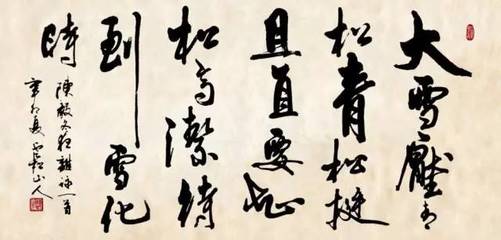 大雪壓青
松青松挺
且直要知
松高潔待
到雪化
時
陳毅冬夜雜詠一首
辛卯夏山人